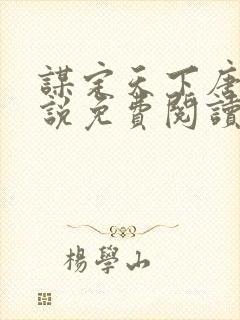 謀定天下唐
說免費閱讀
楊學山